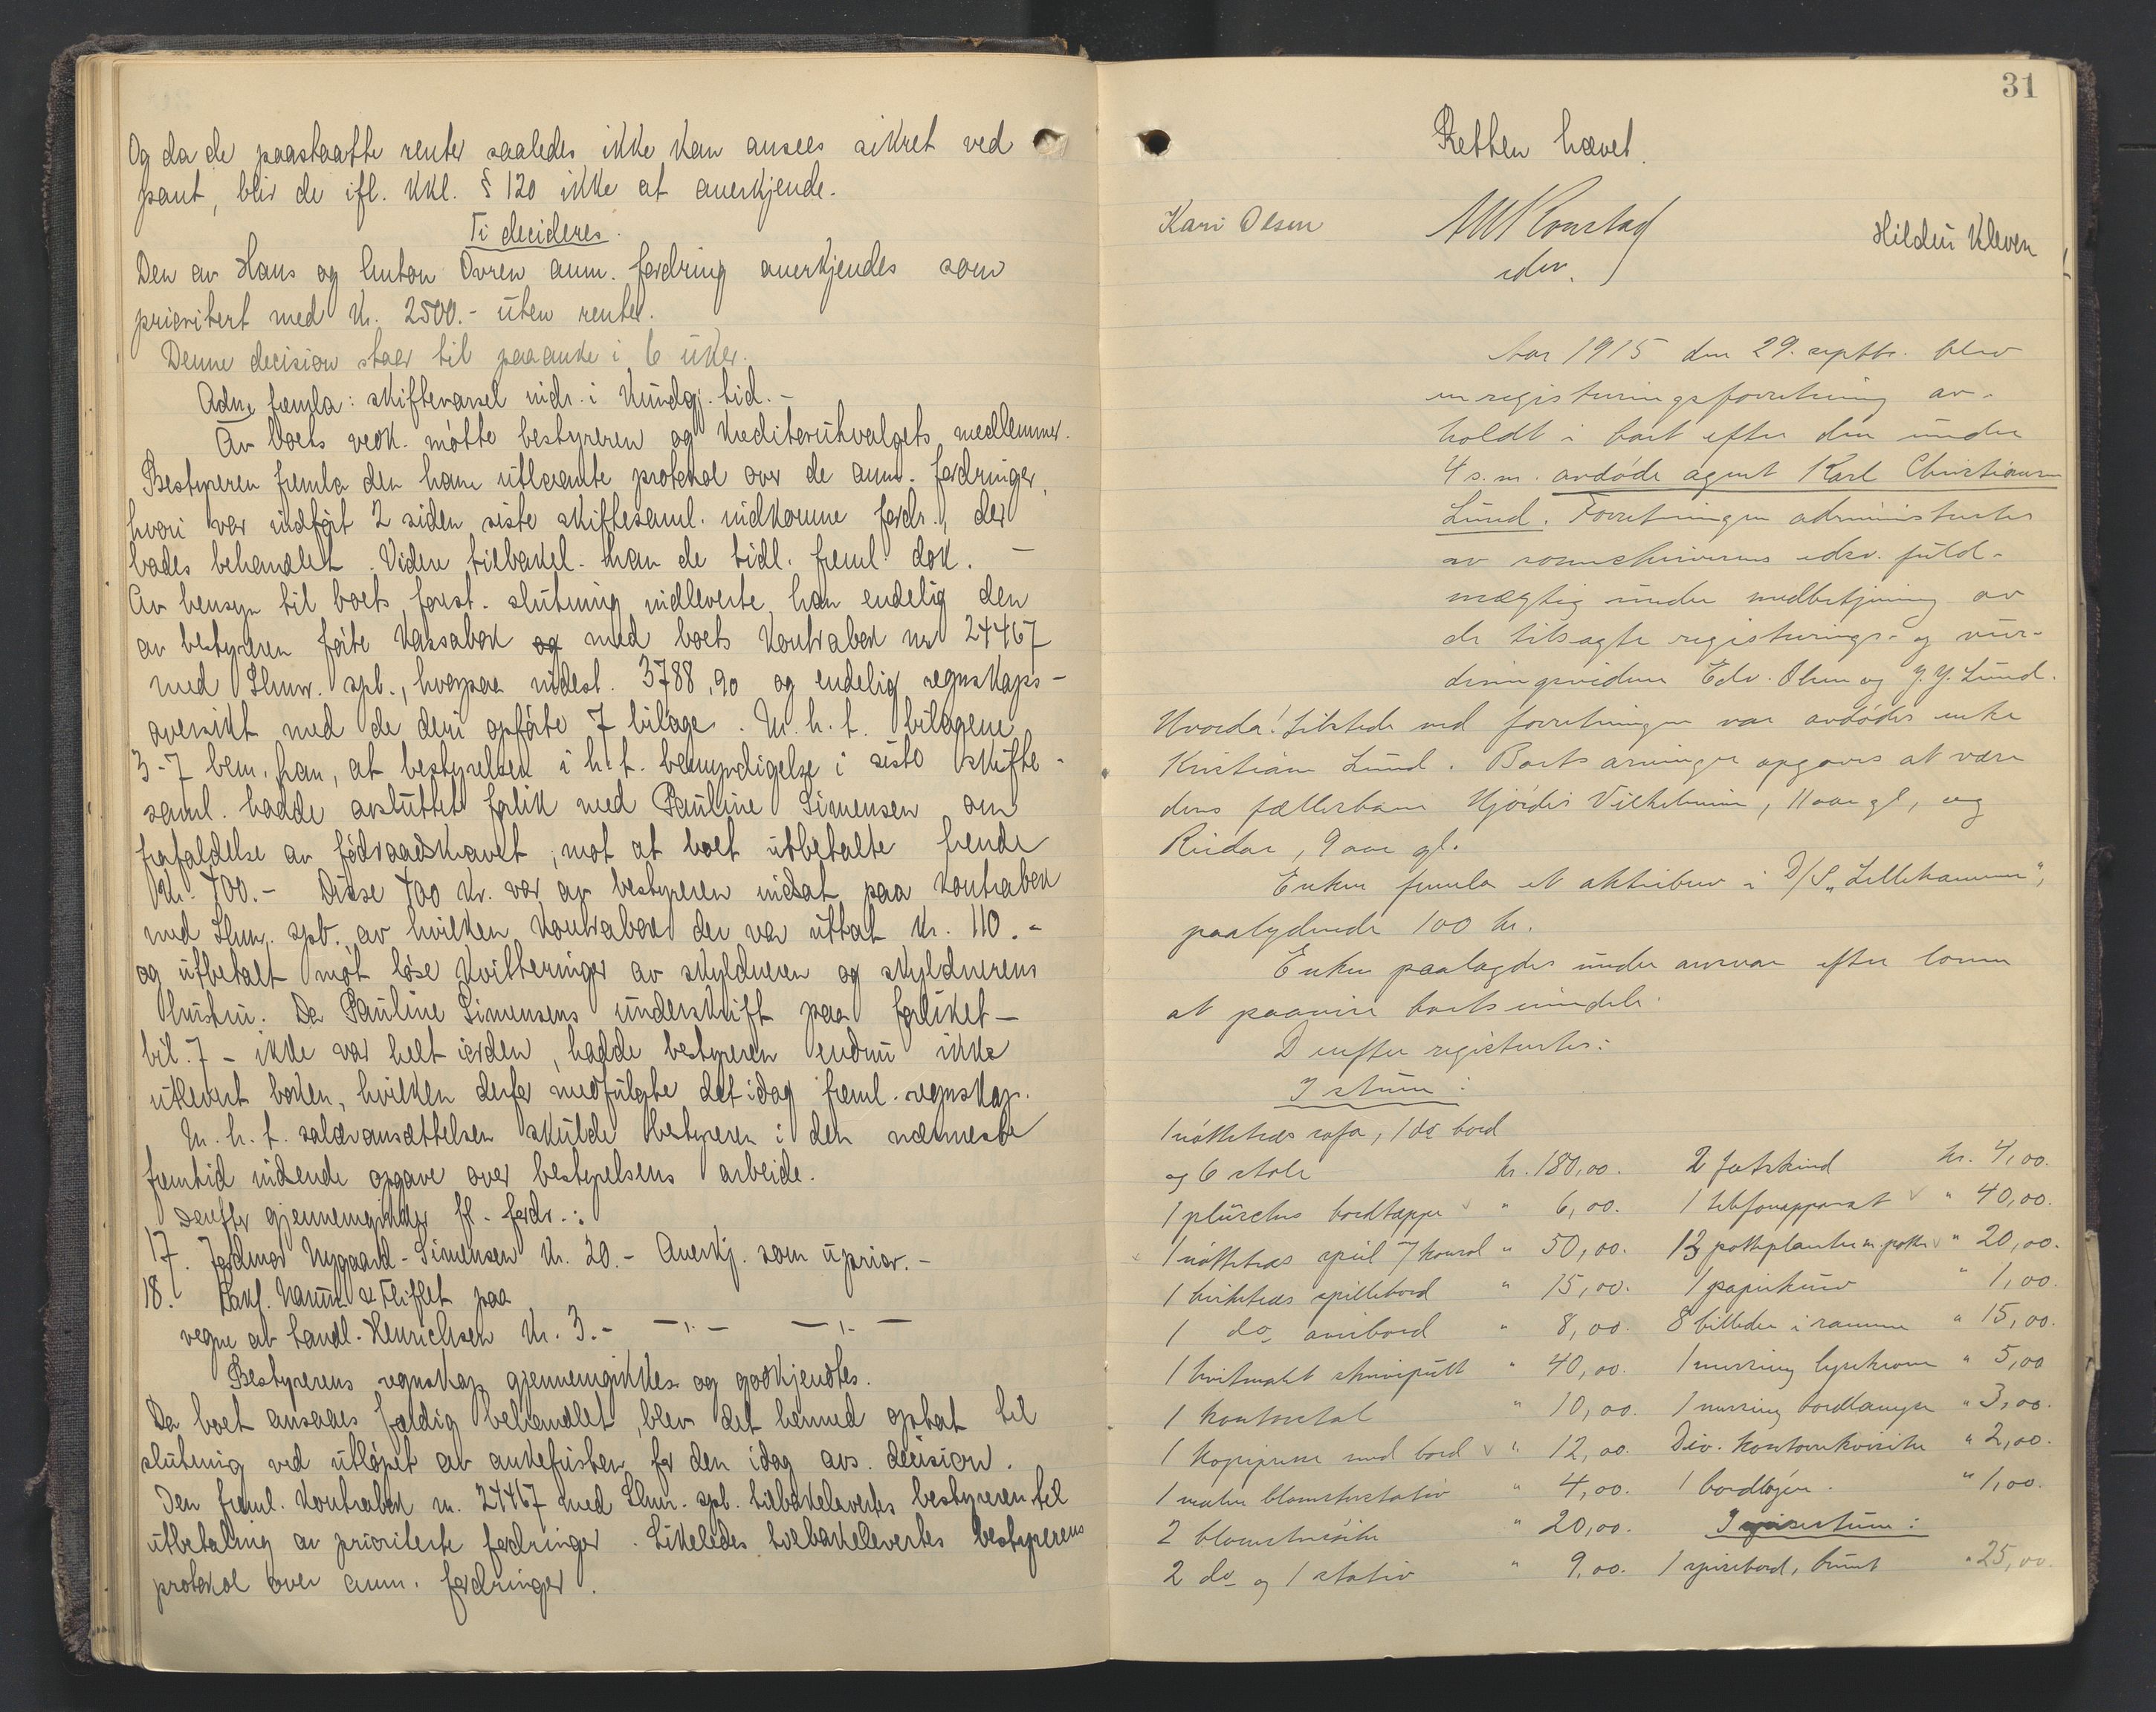 Og da de paastaatte renter saaledes ikke kan ansees sikret ved
pant, blir de ifl. kkl. § 120 ikke at anerkjende.
Ti decideres.
Den av Hans og Anton Övren anm. fordring anerkjendes som
prioritert med kr. 2500.- uten renter.
Denne decision staar til paaanke i 6 uker.
Adm. fremla: skiftevarsel indr. i Kundgj. tid. -
Av boets vedk. møtte bestyreren og kreditorutvalgets medlemmer.
Bestyreren fremla den ham utlaante protokol over de anm. fordringer,
hvori var indført 2 siden siste skiftesaml. indkomne fordr., der
bades behandlet. Videre tilbakel. han de tidl. freml. dok. -
Av hensyn til boets forest. slutning indleverte han endelig den
av bestyreren førte kassabok og med boets kontrabok nr 24467
med Lhmr. spb., hvorpaa indest. 3788,90 og endelig regnskaps-
oversikt med de deri opførte 7 bilage. M. h. t. bilagene
3-7 bem. han, at bestyrelsen i h. t. bemyndigelse i siste skifte-
saml. hadde avsluttet forlik med Pauline Simensen om
frafaldelse av födraadskravet, mot at boet utbetalte hende
kr. 700.- Disse 700 kr. var av bestyreren indsat paa kontrabok
med Lhmr. spb. av hvilken kontrabok der var uttat kr. 110.-
og utbetalt mot løse kvitteringer av skyldneren og skyldnerens
hustru. Da Pauline Simensens underskrift paa forliket -
bil. 7 - ikke var helt iorden, hadde bestyreren endnu ikke
utlevert boken, hvilken derfor medfulgte det idag freml. regnskap.
M. h. t. salæransættelsen skulde bestyreren i den nærmeste
fremtid indsende opgave over bestyrelsens arbeide.
Derefter gjennemgikkes fl. fordr.:
17. Jordmor Nygaard-Simensen kr. 20.- Anerkj. som uprior. -
18. Sakf. Harum & Fliflet paa
vegne av handl. Henrichsen kr. 3.- -"- -"-
Bestyrerens regnskap gjennemgikkes og godkjendtes.
Da boet ansaaes færdig behandlet, blev det hermed optat til
slutning ved utløpet av ankefristen for den idag avs. decision.
Den freml. kontrabok nr. 24467 med Lhmr. spb. tilbakelevertes bestyreren til
utbetaling av prioriterte fordringer. Likeledes tilbakelevertes bestyrerens
protokol over anm. fordringer.
31
Retten hævet.
Kari Olsen
edsv.
Hildur Kleven
Aar 1915 den 29. septbr. blev
en registeringsforretning av-
holdt i boet efter den under
4 s. m. avdøde agent Karl Christiansen
Lund. Forretningen administrertes
av sorenskriverens edsv. fuld-
mægtig under medbetjening av
de tilsagte registerings- og vur-
deringsvidner Edv. Olsen og J. J. Lund.
Hvorda! Tilstede ved forretningen var avdødes enke
Kristiane Lund. Boets arvinger opgaves at være
dens fællesbarn Hjørdis Vilhelmine, 11 aar gl, og
Reidar, 9 aar gl.
Enken fremla et aktiebrev i D/S „Lillehammer",
paalydende 100 kr.
Enken paalagdes under ansvar efter loven
at paavise boets eiendele.
Derefter registrertes:
I stuen:
1 nøttetræs sofa, 1 do bord
og 6 stole kr. 180,00.
1 plüsches bordtæppe " 6,00.
1 nøttetræs speil m/ konsol " 50,00.
1 birketræs spillebord " 15,00.
1 do avisbord " 8,00.
1 hvitmalt skrivepult " 40,00.
1 kontorstol " 10,00.
1 kopipresse med bord " 12,00.
1 malm blomsterstativ " 4,00.
2 blomstersøiler " 20,00.
2 do og 1 stativ " 9,00.
2 faareskind kr. 4,00.
1 telefonapparat " 40,00.
13 potteplanter m. potter " 20,00.
1 papirkurv " 1,00.
8 billeder i ramme " 15,00.
1 messing lysekrone " 5,00
1 messing bordlampe " 3,00.
Div. kontorrekvisiter " 2,00.
1 bordløper " 1,00.
I spisestuen:
1 spisebord, brunt " 25,00.